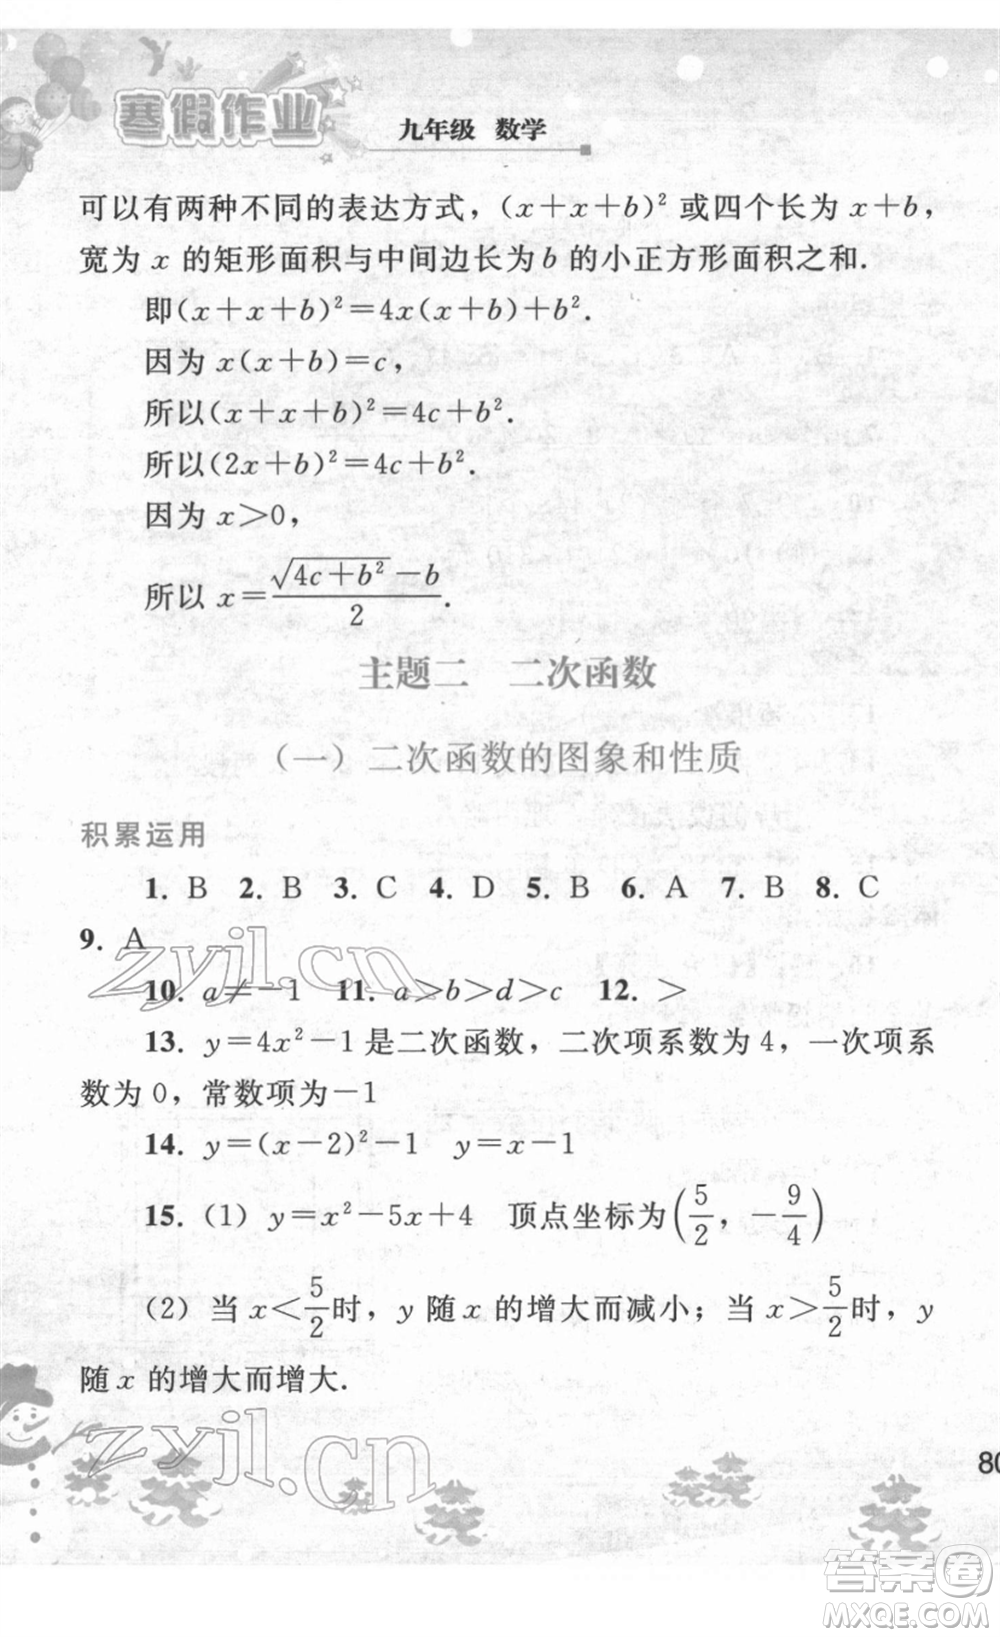 寒假作业
九年级 数学
可以有两种不同的表达方式，(x+x+b)² 或四个长为 x+b，
宽为 x 的矩形面积与中间边长为 b 的小正方形面积之和.
即(x+x+b)²=4x(x+b)+b².
因为 x(x+b)=c，
所以(x+x+b)²=4c+b².
所以(2x+b)²=4c+b².
因为 x>0，
所以 x=(√(4c+b²)-b)/2.
主题二 二次函数
（一）二次函数的图象和性质
积累运用
1. B 2. B 3. C 4. D 5. B 6. A 7. B 8. C
9. A
10. a≠-1 11. a>b>d>c 12. >
13. y=4x²-1 是二次函数，二次项系数为 4，一次项系
数为 0，常数项为-1
14. y=(x-2)²-1 y=x-1
15.（1）y=x²-5x+4 顶点坐标为(5/2，-9/4)
（2）当 x<5/2时，y 随 x 的增大而减小；当 x>5/2时，y
随 x 的增大而增大.
80
zyjl.cn
zyjl.cn
答案卷
MXQE.COM